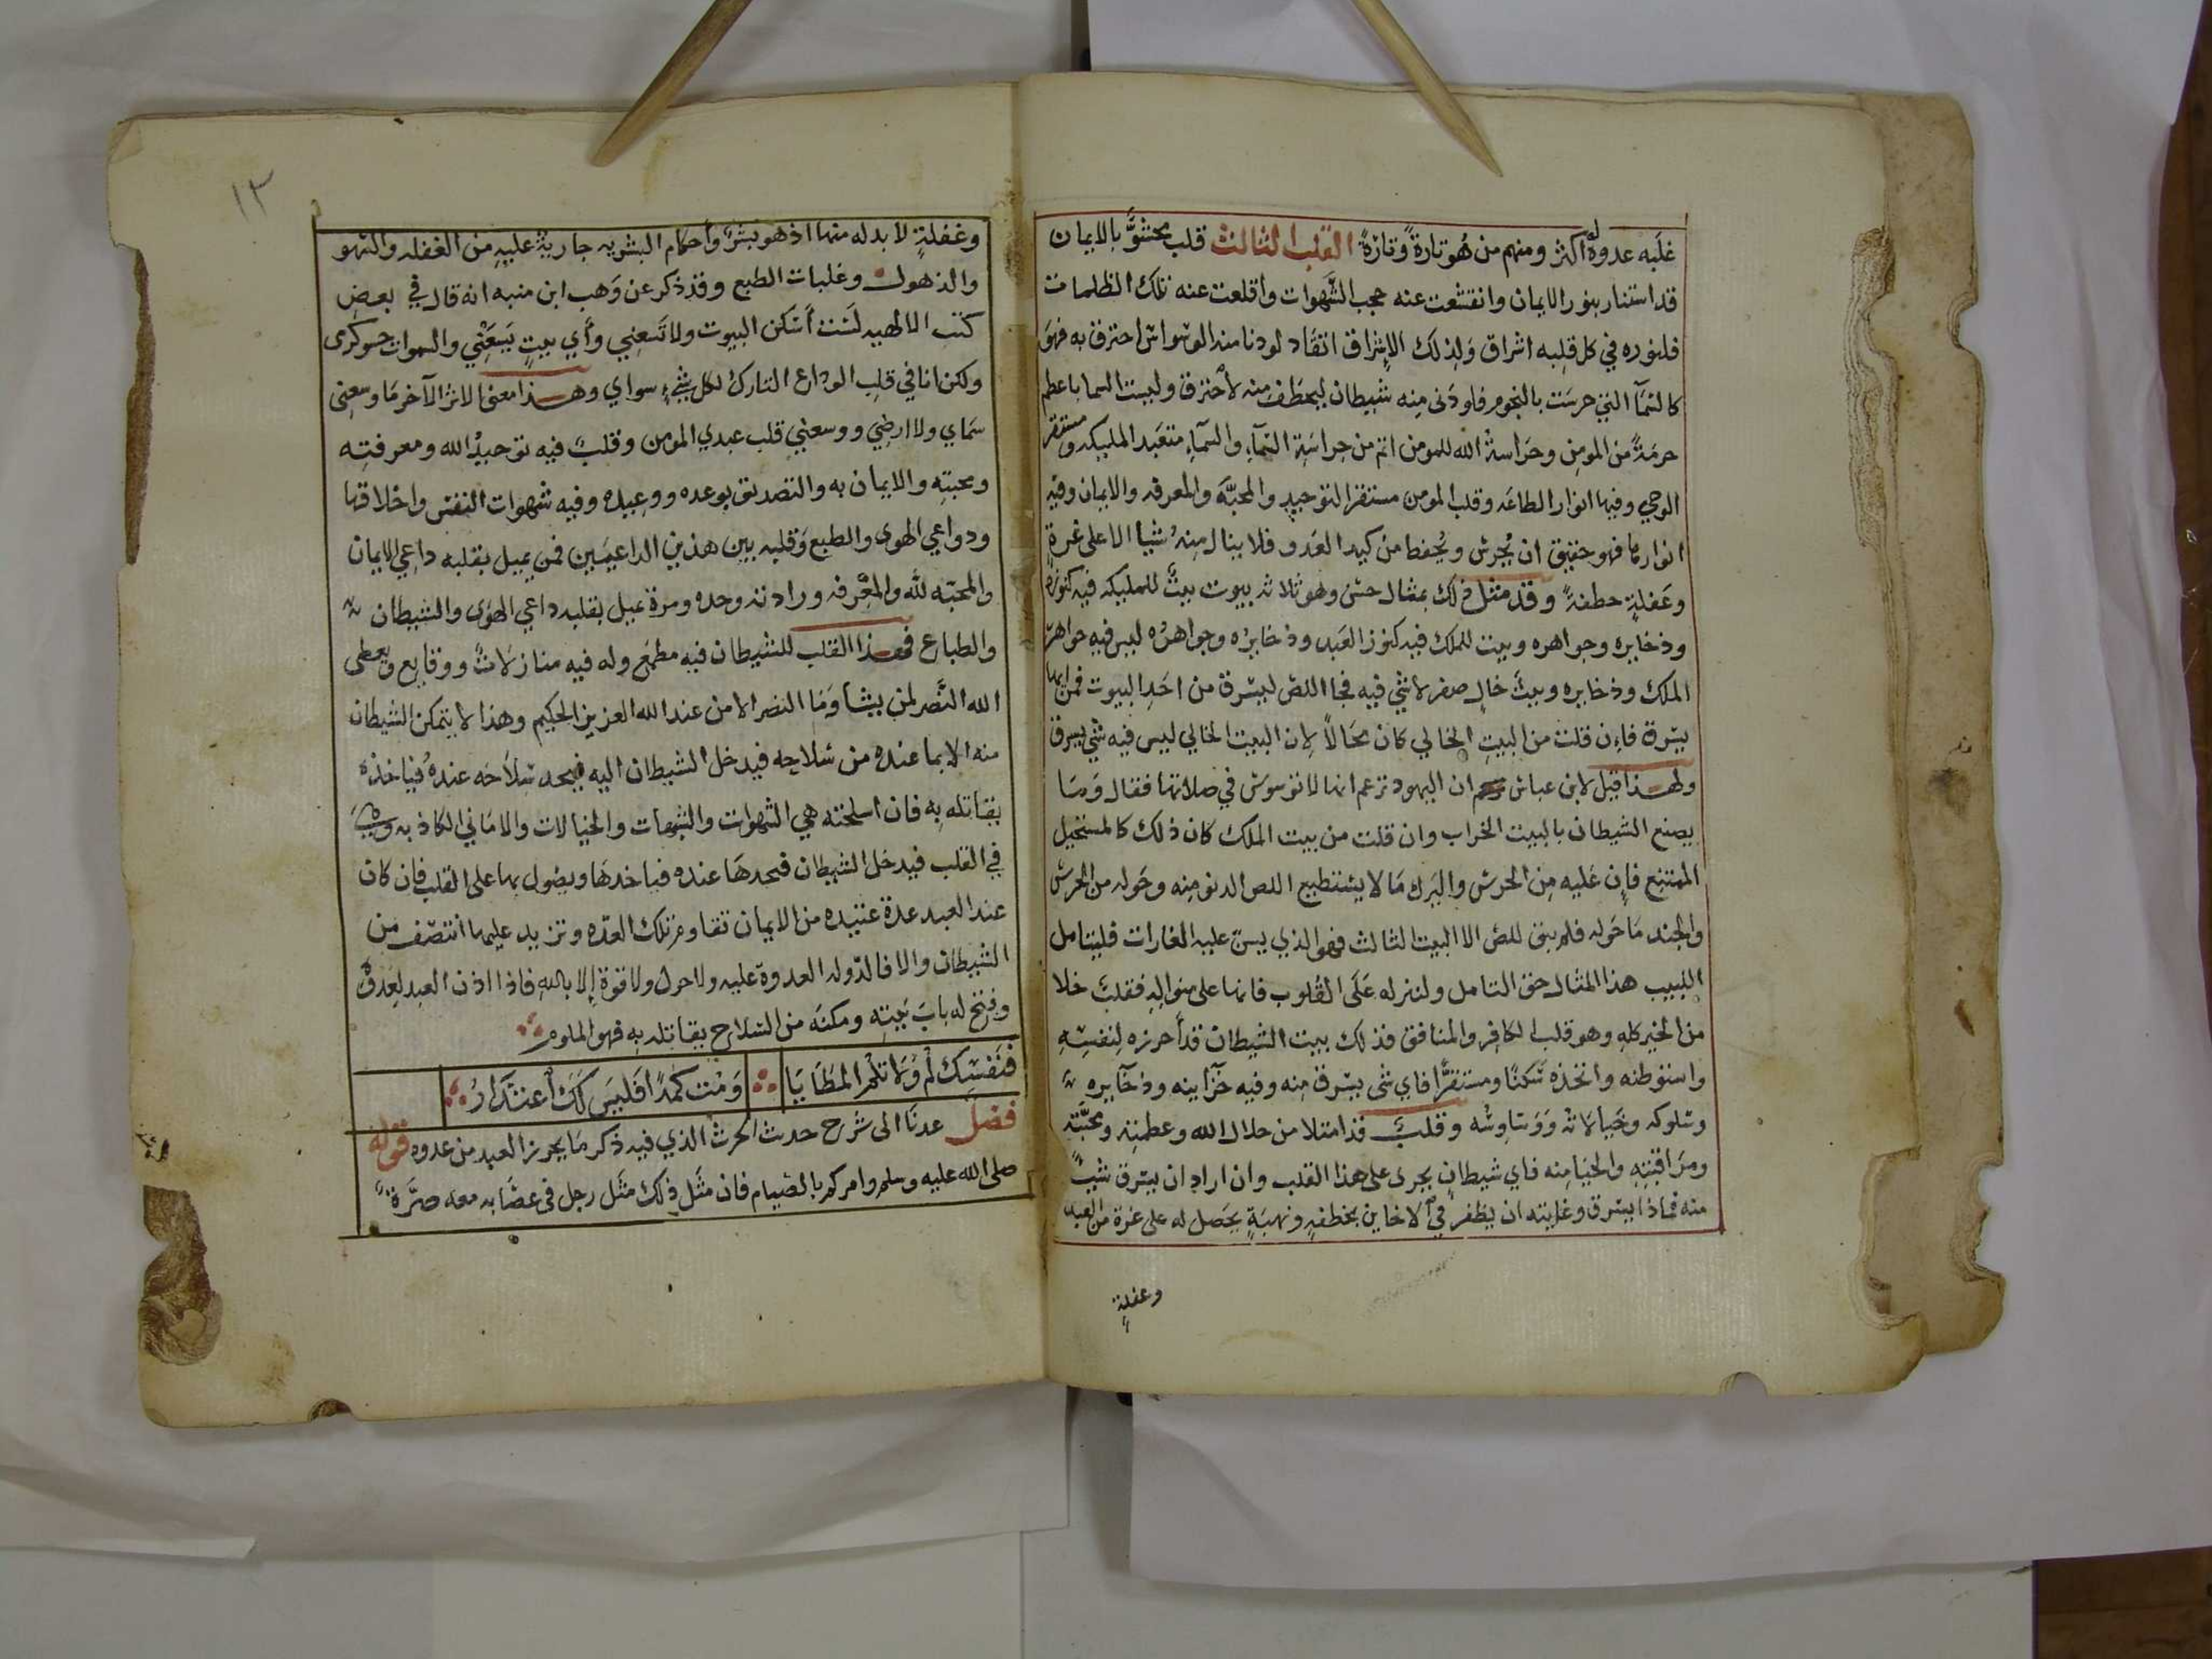 غلَبه عدوه له اكثر ومنهم من هُو تارةً وتارةً القلب الثالث قلب محشوٌّ بالايمان
قد استنار بنور الايمان وانقشعت عنه حجب الشهوات واقلعت عنه تلك الظلمات
فلنوره في كل قلبه اشراق ولذلك الاشراق اتقاد لو دنا منه الوسواس احترق به فهو
كالسمآ التي حرست بالنجوم فلو دنى منه شيطان ليخطف منه لاحترق وليست السما باعظم
حرمةً من المومن وحراسة الله للمومن اتم من حراسة السمآء والسمآء متعبد المليكه ومستقر
الوحي وفيها انوار الطاعه وقلب المومن مستقر التوحيد والمحبّه والمعرفه والايمان وفيه
انوارها فهو حقيق ان يُحرس ويُحفظ من كيد العدو فلا ينال منهُ شيا الا على غرةٍ
وغفلةٍ خطفةً وقد مثل ذلك بمثال حسن وهو ثلاثه بيوت بيتٌ للمليكه فيه كنوزه
وذخايره وجواهره وبيت للملك فيه كنوز العبد وذخايره وجواهره ليس فيه جواهر
الملك وذخايره وبيتٌ خالٍ صفر لا شي فيه فجا اللص ليسرق من احَد البيوت فمن ايها
يسرق فان قلت من البيت الخالي كان محَالاً لان البيت الخالي ليس فيه شي يسرق
ولهذا قيل لابن عباس ان اليهود تزعم انها لا توسوس في صلاتها فقال وَمَا
يصنع الشيطان بالبيت الخراب وان قلت من بيت الملك كان ذلك كالمستحيل
الممتنع فان عليه من الحرس واليزك مَا لا يستطيع اللص الدنو منه وحَوله من الحرس
والجند مَا حَوله فلم يبق للص الا البيت الثالث فهو الذي يسن عليه الغارات فليتامل
اللبيب هذا المثال حق التامل ولينزله عَلَى القُلوب فانها على منواله فقلبٌ خلا
من الخير كله وهو قلب الكافر والمنافق فذلك بيت الشيطان قد أحرزه لنفسه
واستوطنه واتخذه سكنًا ومستقرًّا فاي شى يسرق منه وفيه خزآينه وذخآيره
وشكوكه وخيالاته وَوَساوسُه وقلبٌ قد امتلا من جلال الله وعظمته ومحبّته
ومراقبته والحيا منه فاي شيطان يجرى على هذا القلب وان اراد ان يسرق شيًا
منه فماذا يسرق وغايته ان يظفر في الاحاين بخطفةٍ ونهبَةٍ يحَصل له على غرة من العبد
وغفلةٍ
١٣
وغفلةٍ لا بد له منها اذ هو بشرٌ وأحكام البشريه جاريةٌ عليه من الغفله والسهو
والذهول وغلبات الطبع وقد ذكر عن وَهب ابن منبه انه قال في بعض
كتب الالهيه لسْت أسْكن البيوت ولا تَسعني وأي بيتٍ يَسَعني والسموات حشو كرسى
ولكن انا في قلب الوداع التارك لكل شيءٍ سواي وهذا معنى الاثر الآخر مَا وسعنى
سمَاي ولا ارضي ووسعني قلب عبدي المومن وقلبٌ فيه توحيدُ الله ومعرفته
ومحبته والايمان به والتصديق بوعده ووعيده وفيه شهوات النفس واخلاقها
ودواعي الهوى والطبع وَقلبه بين هذين الداعيَين فمن يميل بقلبه داعي الايمان
والمحبّه للّه والمعْرفه وارادته وحده ومرة يميل بقلبه داعي الهوى والشيطان
والطباع فهذا القلب للشيطان فيه مطمَع وله فيه منازلاتٌ ووقايع ويعطى
الله النَّصر لمن يشأ وَمَا النصر الا من عند الله العزيز الحكيم وهذا لا يتمكن الشيطان
منه الا بما عنده من سلاحِه فيدخل الشيطان اليه فيجد سلاَحَه عنده فياخذه
يقاتله به فان اسلحته هي الشهوات والشبهات والخيالات والامَاني الكاذبه وهي
في القلب فيدخل الشيطان فيجدهَا عنده فياخذهَا ويصُول بها على القلب فان كان
عند العبد عدة عتيده من الايمان تقاوم تلك العدّه وتزيد عليها انتصَف من
الشيطان والا فالدّوله لعدوة عليه ولا حول ولا قوة إلا بالله فاذا اذن العبد لعدوّه
وفتح له بابَ بَيته ومكنَه من السّلاح يقاتله به فهو الملوم
فَنَفسَكَ لُمْ وَلَا تلم المطَايَا وَمُت كمَدًا فَليسَ لكَ أعتذَارُ
فصل عدنا الى شَرح حدث الحرث الذي فيه ذكر مَا يحرز العبد من عدوه قوله
صلى الله عليه وسلم وامركم بالصيام فان مثَل ذلك مثَل رجل فى عصَابه معه صرَّةً